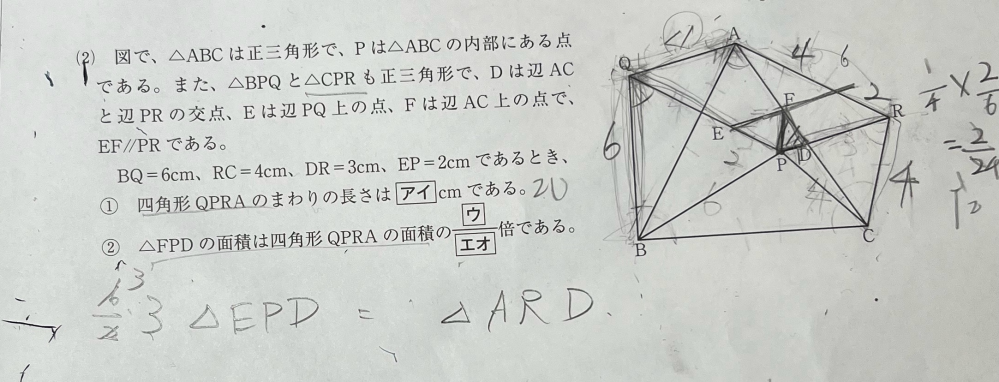 (2) 図で、△ABCは正三角形で、Pは△ABCの内部にある点
である。また、△BPQと△CPRも正三角形で、Dは辺AC
と辺PRの交点、Eは辺PQ上の点、Fは辺AC上の点で、
EF//PRである。
BQ=6cm、RC=4cm、DR=3cm、EP=2cmであるとき、
① 四角形QPRAのまわりの長さはアイcmである。20
② △FPDの面積は四角形QPRAの面積のウ/エオ倍である。
3 △EPD = △ARD.
A
4
6
Q
F
2
R
E
6
2
P
D
4
4
6
B
C
1/4 × 2/6
= 2/24